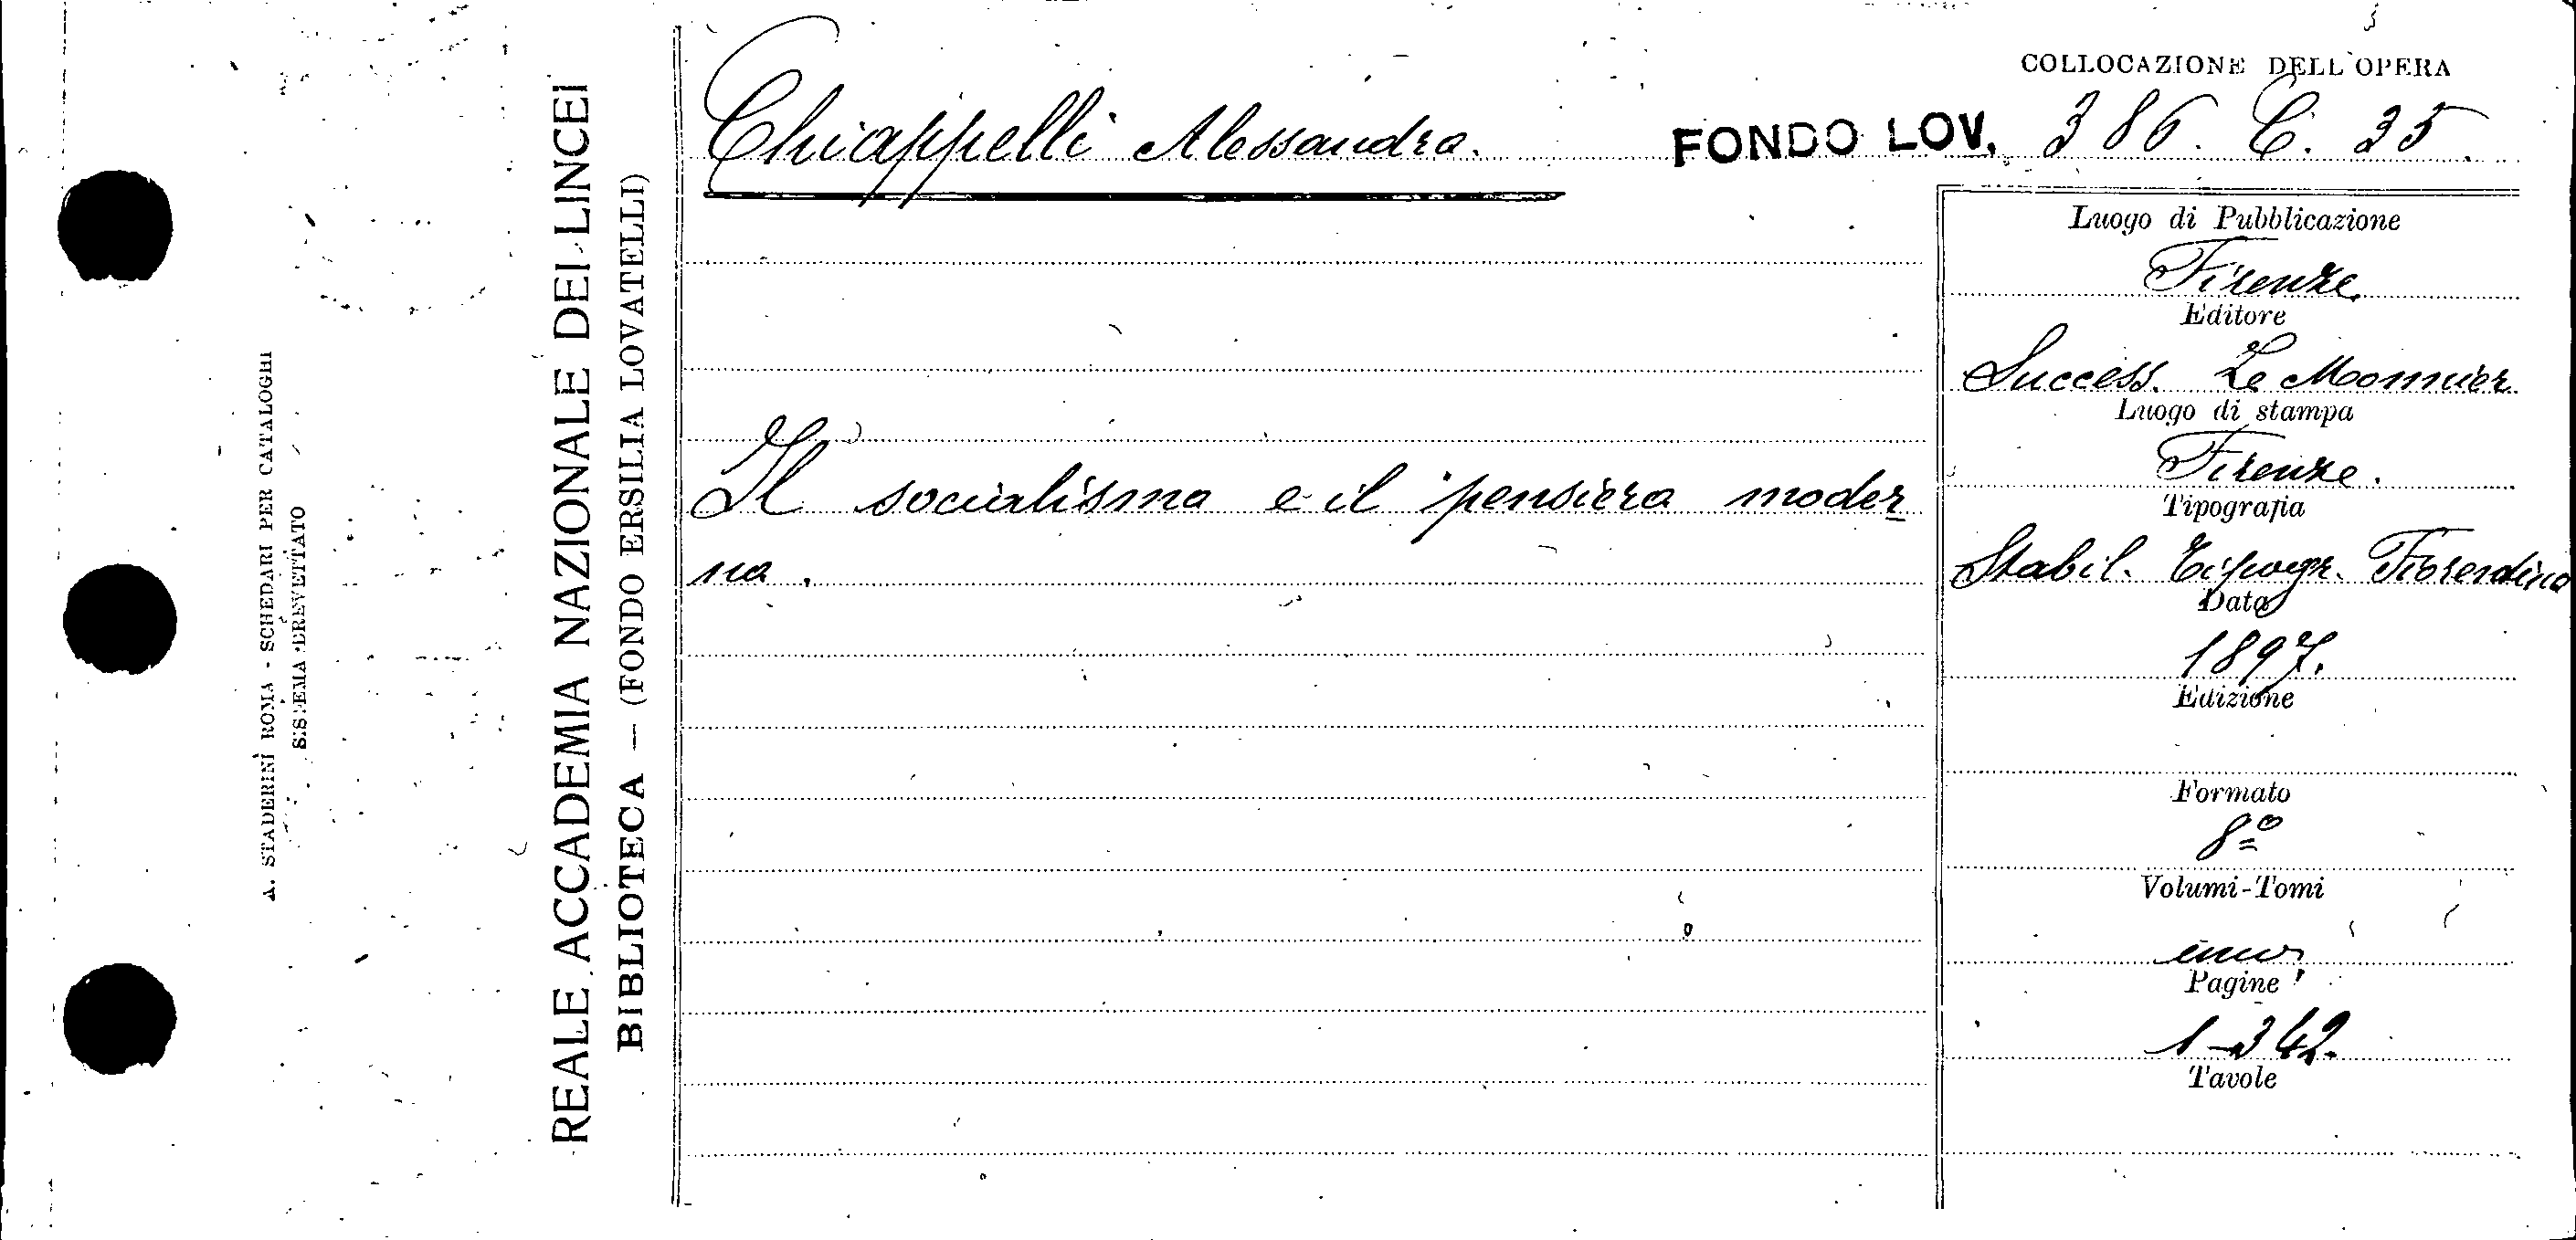 COLLOCAZIONE DELL'OPERA
Chiappelli Alessandro.
FONDO LOV. 386. C. 35.
Il socialismo e il pensiero moder
no.
Luogo di Pubblicazione
Firenze
Editore
Success. Le Monnier
Luogo di stampa
Firenze.
Tipografia
Stabil. Tipogr. Fiorentino
Data
1897.
Edizione
Formato
8º
Volumi-Tomi
uno
Pagine
1-342.
Tavole
REALE ACCADEMIA NAZIONALE DEI LINCEI
BIBLIOTECA — (FONDO ERSILIA LOVATELLI)
A. STADERINI ROMA - SCHEDARI PER CATALOGHI
SISTEMA BREVETTATO